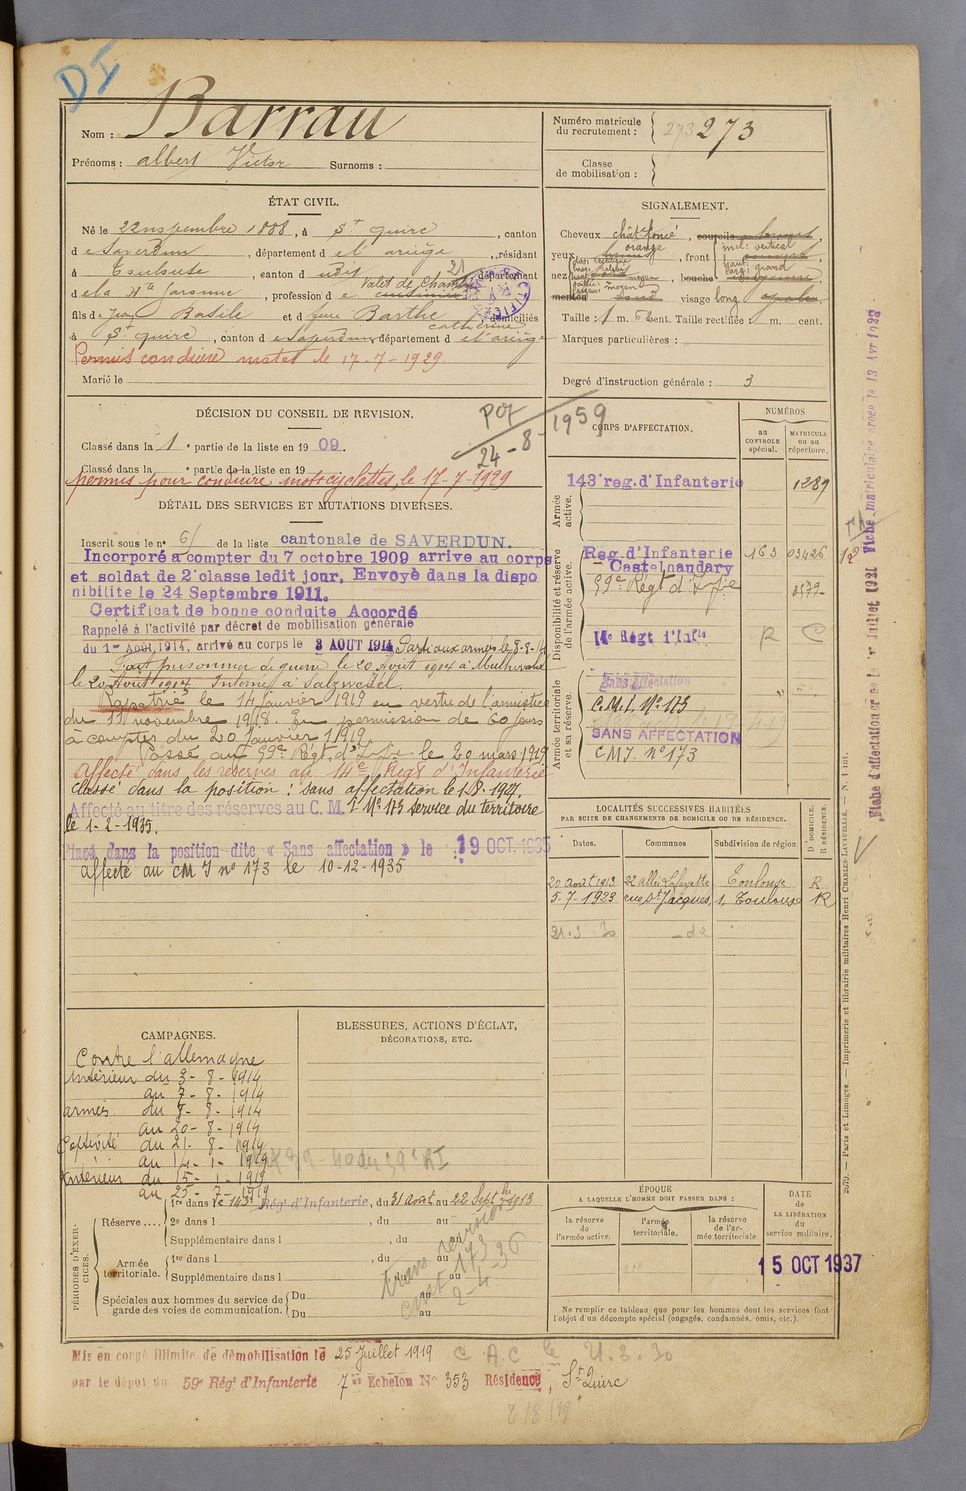 DI
Nom : Barrau
Prénoms : albert Victor Surnoms :
Numéro matricule du recrutement : 273 273
Classe de mobilisation :
ÉTAT CIVIL.
Né le 22 1888, à St quirc, canton
d e Saverdun, département d el ariège, résidant
à Toulouse, canton d udit, département
Valet de Chambre
d ela Hte Garonne, profession d e
fils de Jean Basile et d feue Barthe domiciliés
catherine
à St quirc, canton d e Saverdun, département d el ariège
Permis conduire motet le 17-7-1929
Marié le
SIGNALEMENT.
Cheveux chât foncé, sourcils
yeux orange, front incl: vertical
nez, bouche
larg: grand
menton visage long
Taille : 1 m. 68 cent. Taille rectifiée : m. cent.
Marques particulières :
Degré d'instruction générale : 3
DÉCISION DU CONSEIL DE REVISION.
Classé dans la 1 e partie de la liste en 19 09.
Classé dans la e partie de la liste en 19
permis pour conduire motocyclettes, le 17-7-1929
24-8-1959
DÉTAIL DES SERVICES ET MUTATIONS DIVERSES.
Inscrit sous le n° 61 de la liste cantonale de SAVERDUN.
Incorporé a compter du 7 octobre 1909 arrive au corps
et soldat de 2e classe ledit jour. Envoyè dans la dispo
nibilite le 24 Septembre 1911.
Certificat de bonne conduite Accordé
Rappelé à l'activité par décret de mobilisation générale
du 1er Août 1914, arrivé au corps le 3 AOUT 1914 Parti aux armées le 8-8-14
Fait prisonnier de guerre le 20 Août 1914 à
le 20 Août 1914 Interné à Salzwedel.
Rapatrié le 14 Janvier 1919 en vertu de l'armistice
du 11 novembre 1918. En permission de 60 jours
à compter du 20 Janvier 1919.
Passé au 59e Régt. d'Ie le 20 mars 1919
Affecté dans les réserves au 14e Régt d'Infanterie
classé dans la position : sans affectation le 1.8.1927.
Affecté au titre des réserves au C. M. I N° 173 service du territoire
le 1-2-1935.
Placé dans la position dite « Sans affectation » le 19 OCT. 1935
affecté au CM I n° 173 le 10-12-1935
CORPS D'AFFECTATION.
NUMÉROS
au CONTROLE spécial.
MATRICULE ou au répertoire.
Armée active.
143e reg. d'Infanterie 1289
Disponibilité et réserve de l'armée active.
Reg. d'Infanterie 163 03426
Castelnaudary
59e Régt d'Ie
14e Régt d'Infie R C
Armée territoriale et sa réserve.
Sans affectation
C.M.I. N° 173
SANS AFFECTATION
CMI. n° 173
LOCALITÉS SUCCESSIVES HABITÉES
PAR SUITE DE CHANGEMENTS DE DOMICILE OU DE RÉSIDENCE.
Dates. Communes Subdivision de région.
D. DOMICILE. R. RÉSIDENCE.
20 Août 1913 22 allée Lafayette Toulouse R
5-7-1923 rue St Jacques, 1, Toulouse R
21.3.30 do
CAMPAGNES.
Contre l'allemagne
Intérieur du 3-8-1914
au 7-8-1914
armées du 8-8-1914
au 20-8-1914
Captivité du 21-8-1914
au 14-1-1919
Intérieur du 15-1-1919
au 25-7-1919
BLESSURES, ACTIONS D'ÉCLAT,
DÉCORATIONS, ETC.
PÉRIODES D'EXERCICES.
Réserve....
1re dans le 143e Régt d'Infanterie, du 31 Août au 22 Septbre 1913
2e dans l, du au
Supplémentaire dans l, du au
Armée territoriale.
1re dans l, du au
Supplémentaire dans l, du au
Spéciales aux hommes du service de garde des voies de communication.
Du au
Du au
ÉPOQUE
A LAQUELLE L'HOMME DOIT PASSER DANS :
la réserve de l'armée active.
l'armée territoriale.
la réserve de l'armée territoriale
DATE de LA LIBÉRATION du service militaire.
15 OCT 1937
Ne remplir ce tableau que pour les hommes dont les services font
l'objet d'un décompte spécial (engagés, condamnés, omis, etc.).
Mis en congé illimité de démobilisation le 25 Juillet 1919
par le dépôt du 59e Régt d'Infanterie 7er Echelon N° 353 Résidence, St Quirc
C A C le 21.3.30
2079. — Paris et Limoges. — Imprimerie et librairie militaires Henri CHARLES-LAVAUZELLE. — N. 1 int.
Fiche matriculaire créée le 13 Avr 1938